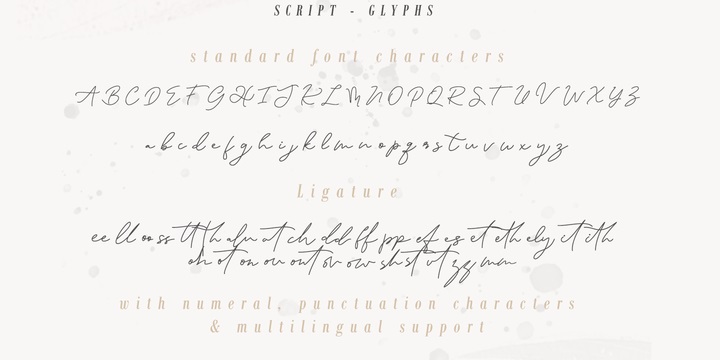 SCRIPT - GLYPHS
standard font characters
A B C D E F G H I J K L M N O P Q R S T U V W X Y Z
a b c d e f g h i j k l m n o p q r s t u v w x y z
Ligature
ee ll oo ss tt th at ch dd ff pp ef es et eth ely it ith
oh ot on ov ont or ow sh st ut zz mm
with numeral, punctuation characters
& multilingual support